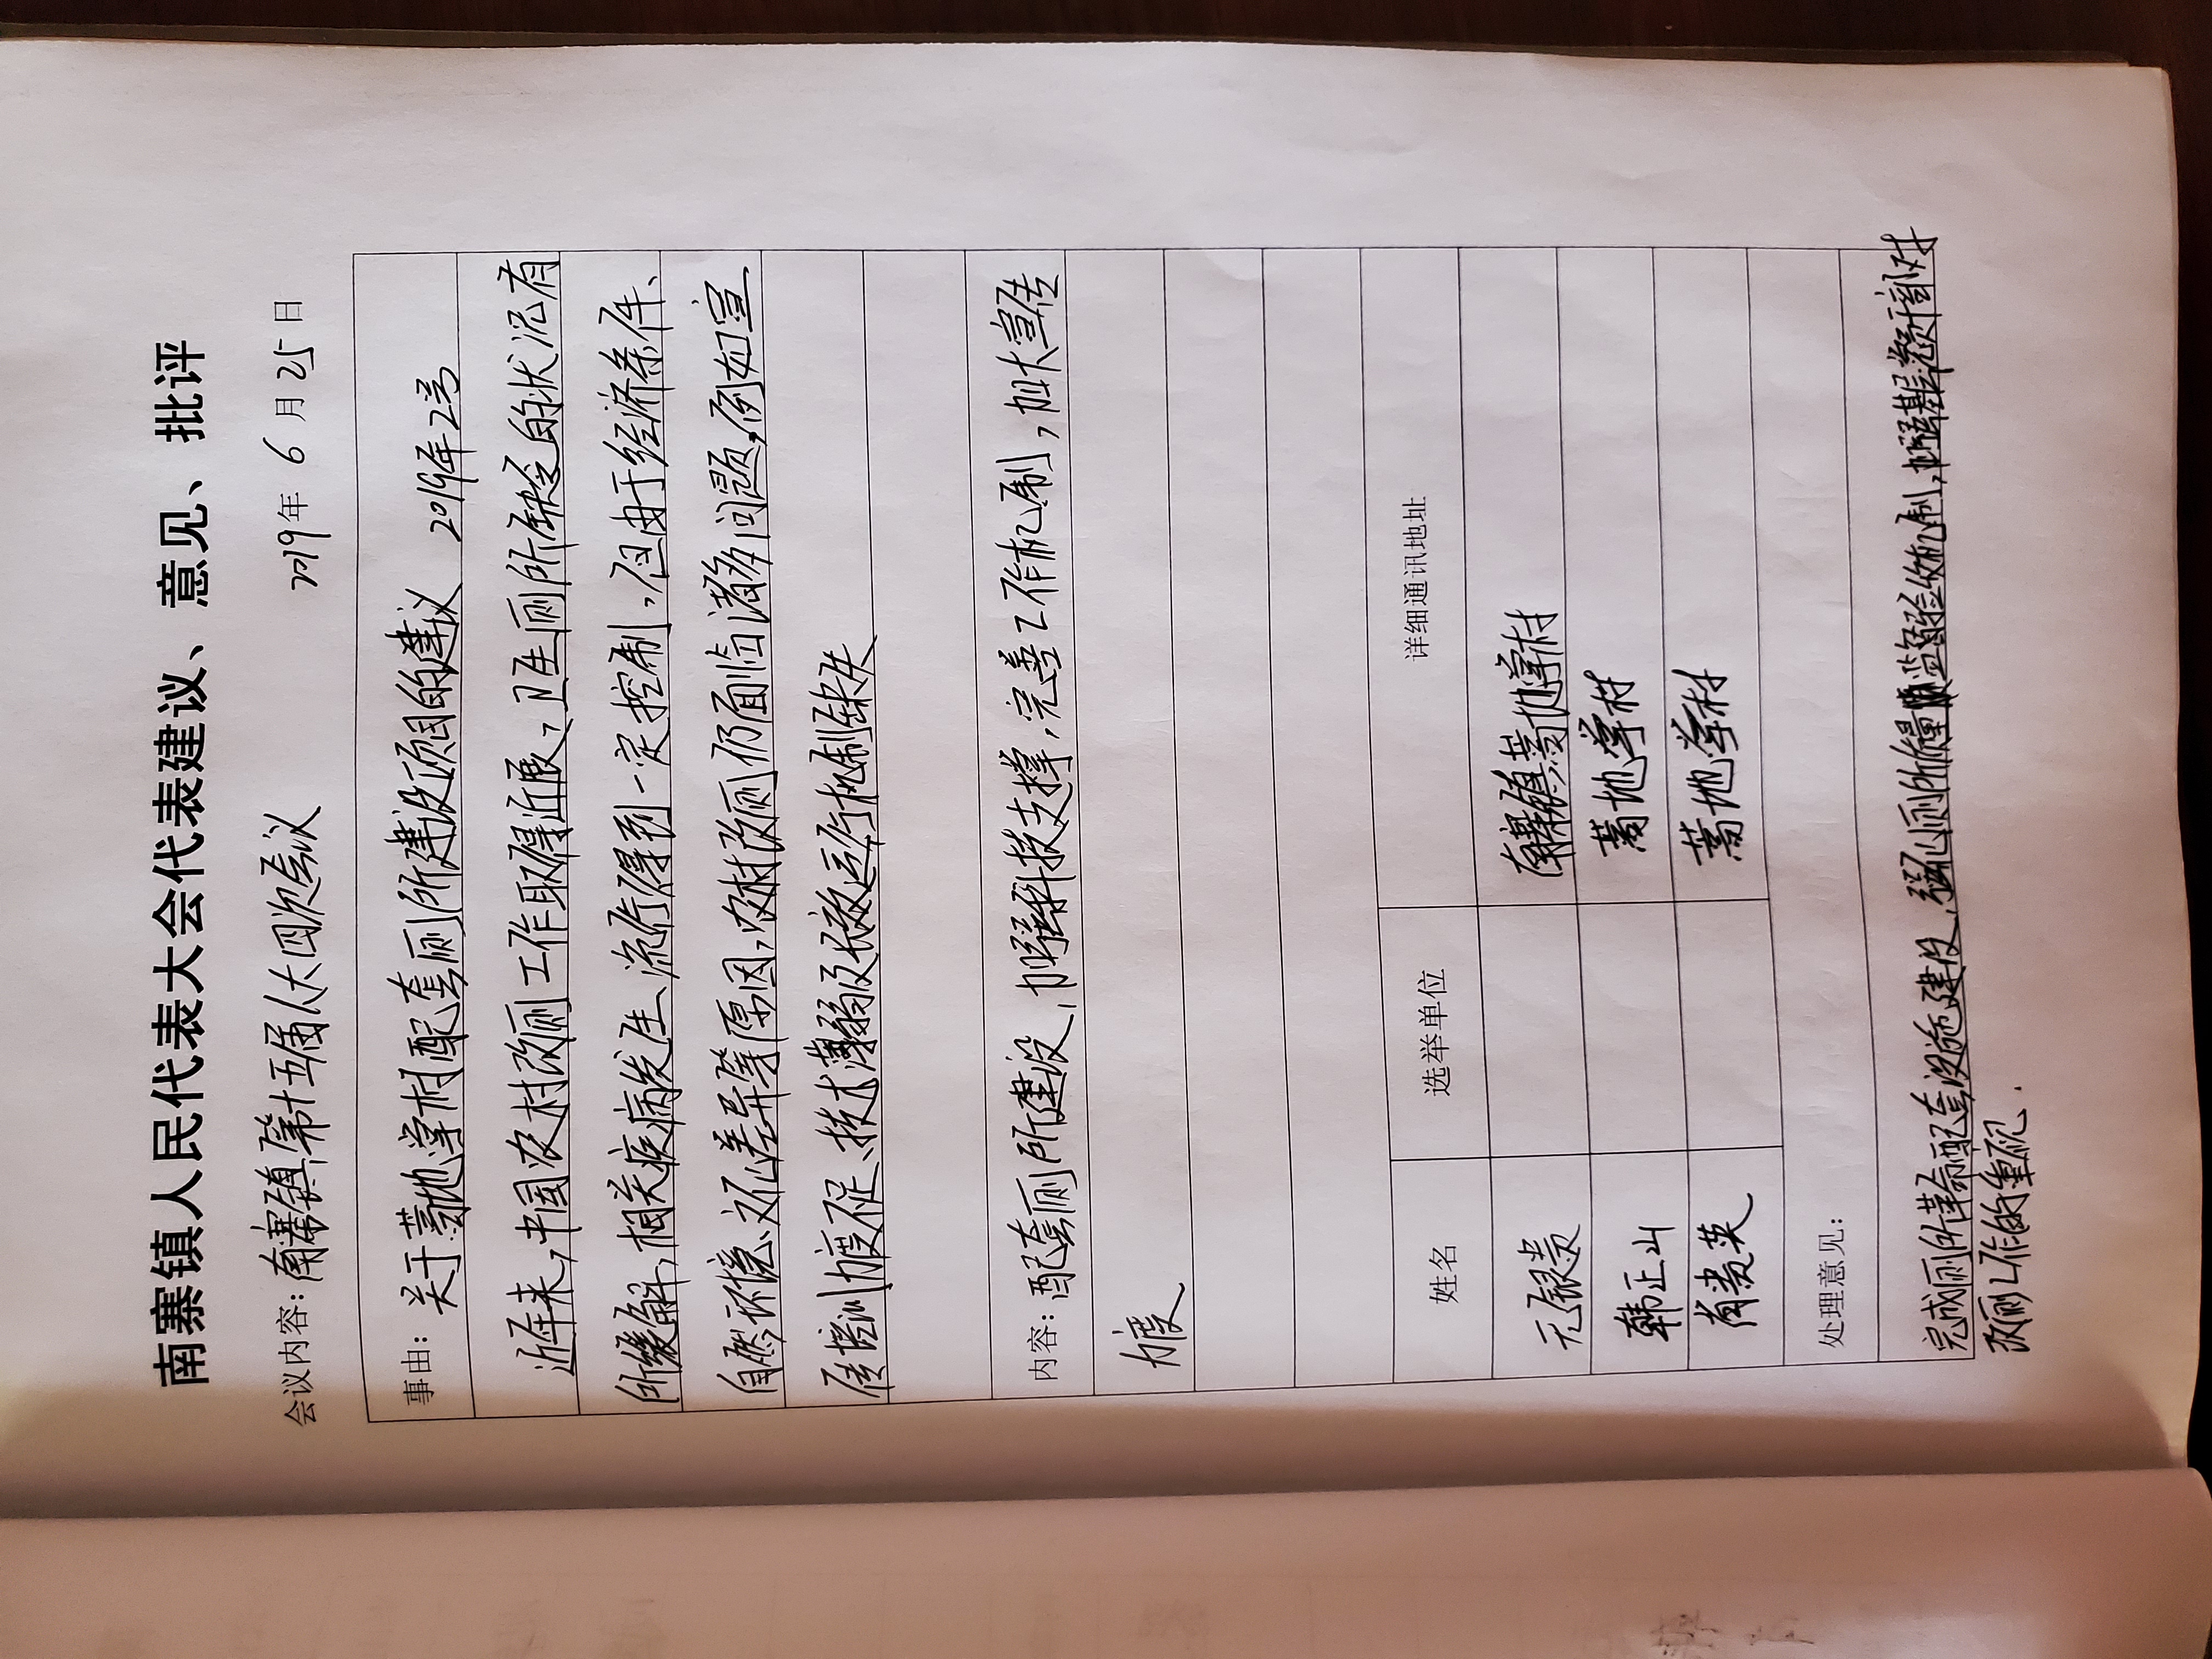 南寨镇人民代表大会代表建议、意见、批评
会议内容：南寨镇第十五届人大四次会议 2019年 6 月 25 日
事由：关于蒿地掌村配套厕所建设项目的建议 2019年2号
近年来，中国农村改厕工作取得近展，卫生厕所缺乏的状况有
所缓解，相关疾病发生、流行得到一定控制，但由于经济条件、
自然环境、文化差异等原因，农村改厕仍面临诸多问题，例如宣
传培训力度不足、技术薄弱及长效运行机制缺失
内容：配套厕所建设，加强科技支撑，完善工作机制，加大宣传
力度
姓名 选举单位 详细通讯地址
元银贵 南寨镇蒿地掌村
韩正山 蒿地掌村
肖贵英 蒿地掌村
处理意见：
完成厕所革命配套设施建设，强化厕所质量监督验收机制，加强基层干部对
改厕工作的重视.